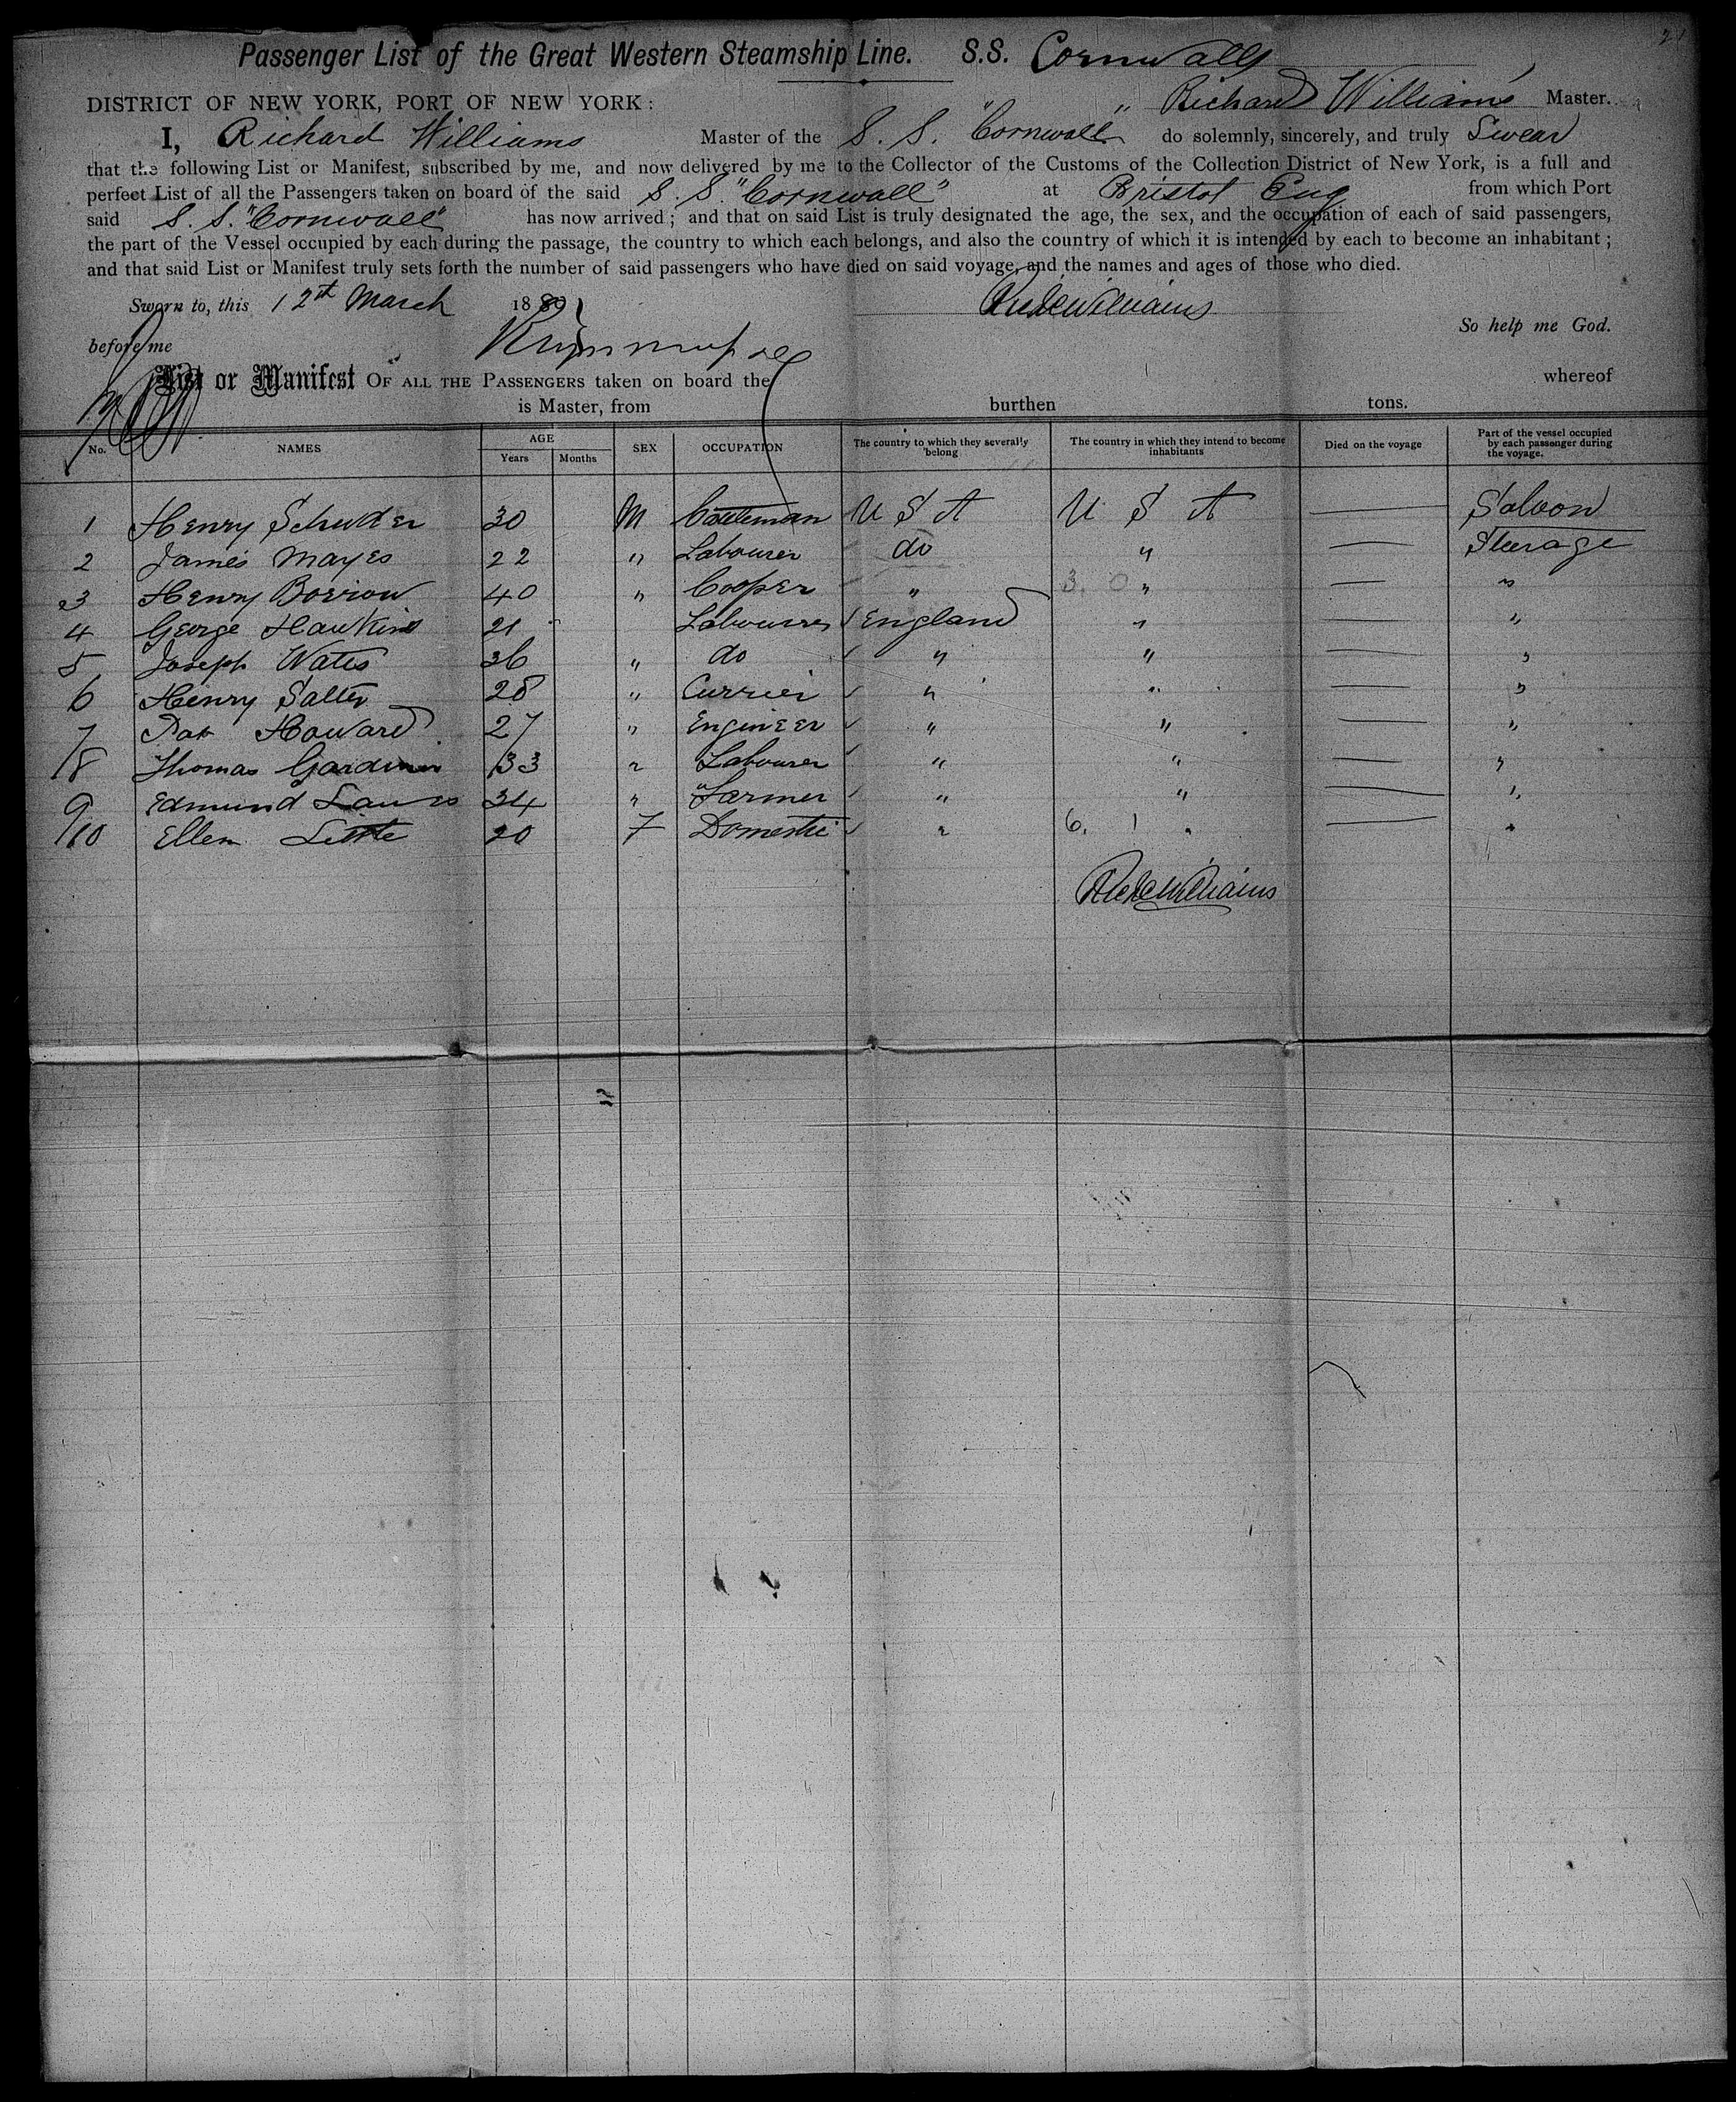 Passenger List of the Great Western Steamship Line. S.S. Cornwall
DISTRICT OF NEW YORK, PORT OF NEW YORK: Richard Williams Master.
I, Richard Williams Master of the S. S. "Cornwall" do solemnly, sincerely, and truly Swear
that the following List or Manifest, subscribed by me, and now delivered by me to the Collector of the Customs of the Collection District of New York, is a full and
perfect List of all the Passengers taken on board of the said S. S. "Cornwall" at Bristol Eng from which Port
said S. S. "Cornwall" has now arrived; and that on said List is truly designated the age, the sex, and the occupation of each of said passengers,
the part of the Vessel occupied by each during the passage, the country to which each belongs, and also the country of which it is intended by each to become an inhabitant;
and that said List or Manifest truly sets forth the number of said passengers who have died on said voyage, and the names and ages of those who died.
Sworn to, this 12th March 1889 Richd Williams
So help me God.
before me
List or Manifest OF ALL THE PASSENGERS taken on board the whereof
is Master, from burthen tons.
No. NAMES AGE Years Months SEX OCCUPATION The country to which they severally belong The country in which they intend to become inhabitants Died on the voyage Part of the vessel occupied by each passenger during the voyage.
1 Henry 30 M Cattleman U S A U S A — Saloon
2 James Mayes 22 " Labourer do " — Steerage
3 Henry Borrow 40 " Cooper " 3. 0 " — "
4 George Hawkins 21 " Labourer England " — "
5 Joseph Wates 36 " do " " — "
6 Henry Salter 28 " Currier " " — "
7 Pat Howard 27 " Engineer " " — "
8 Thomas Gardiner 33 " Labourer " " — "
9 Edmund 34 " Farmer " " — "
10 Ellen Little 20 F Domestic " 6. 1 " — "
Richd Williams